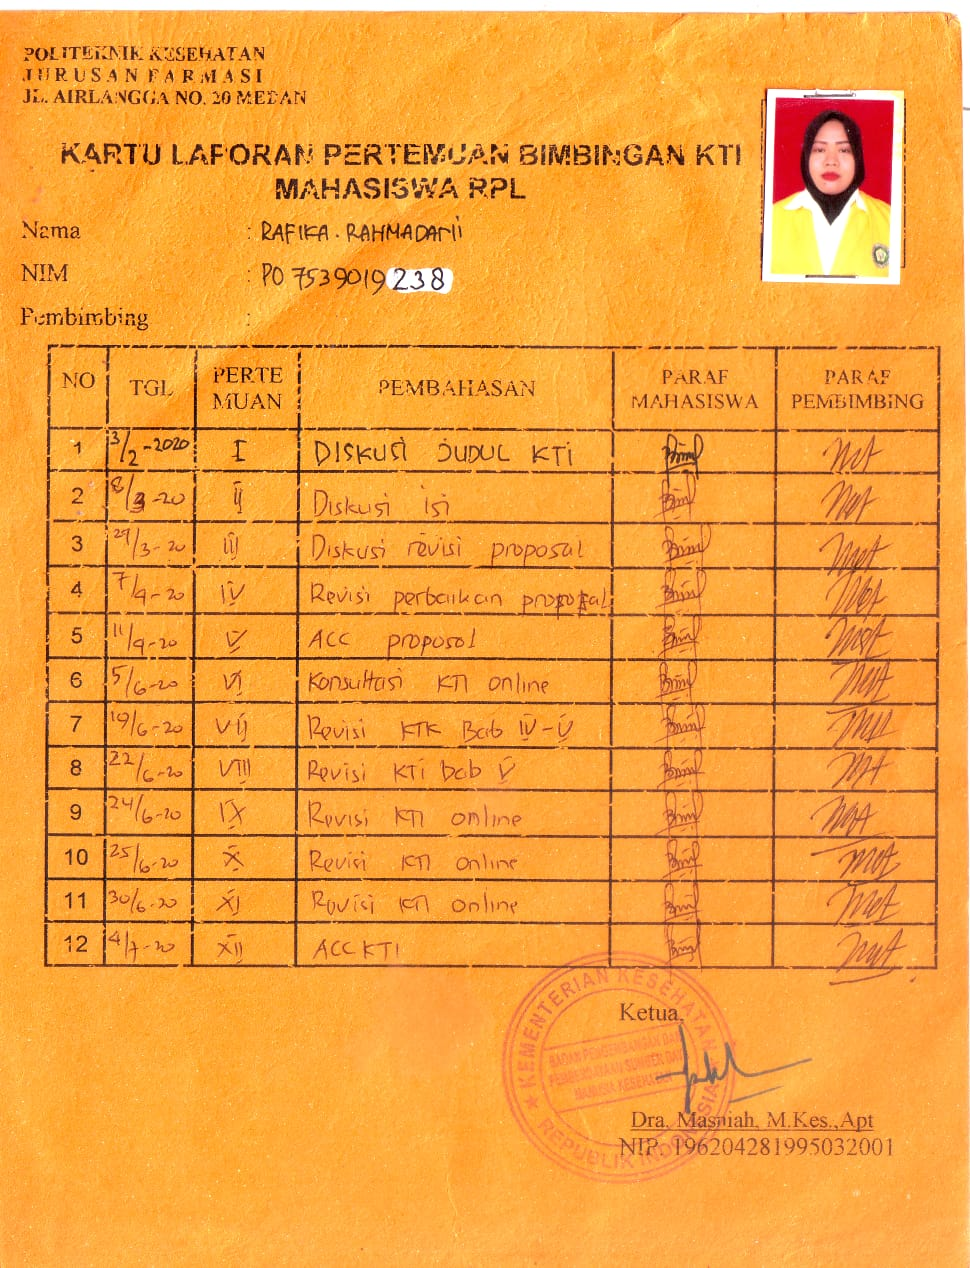 POLITEKNIK KESEHATAN
JURUSAN FARMASI
JL. AIRLANGGA NO. 20 MEDAN
KARTU LAPORAN PERTEMUAN BIMBINGAN KTI
MAHASISWA RPL
Nama : RAFIKA RAHMADANI
NIM : PO 7539019238
Pembimbing :
NO TGL PERTE MUAN PEMBAHASAN PARAF MAHASISWA PARAF PEMBIMBING
1 3/2-2020 I DISKUSI JUDUL KTI
2 8/3-20 II Diskusi isi
3 29/3-20 III Diskusi revisi proposal
4 7/4-20 IV Revisi perbaikan proposal
5 11/4-20 V ACC proposal
6 5/6-20 VI Konsultasi KTI online
7 19/6-20 VII Revisi KTK Bab IV-V
8 22/6-20 VIII Revisi KTi bab V
9 24/6-20 IX Revisi KTI online
10 25/6-20 X Revisi KTI online
11 30/6-20 XI Revisi KTI online
12 4/7-20 XII ACC KTI
Ketua,
KEMENTERIAN KESEHATAN
BADAN PENGEMBANGAN DAN
PEMBERDAYAAN SUMBER DAYA
MANUSIA KESEHATAN
REPUBLIK INDONESIA
Dra. Masniah, M.Kes.,Apt
NIP. 196204281995032001